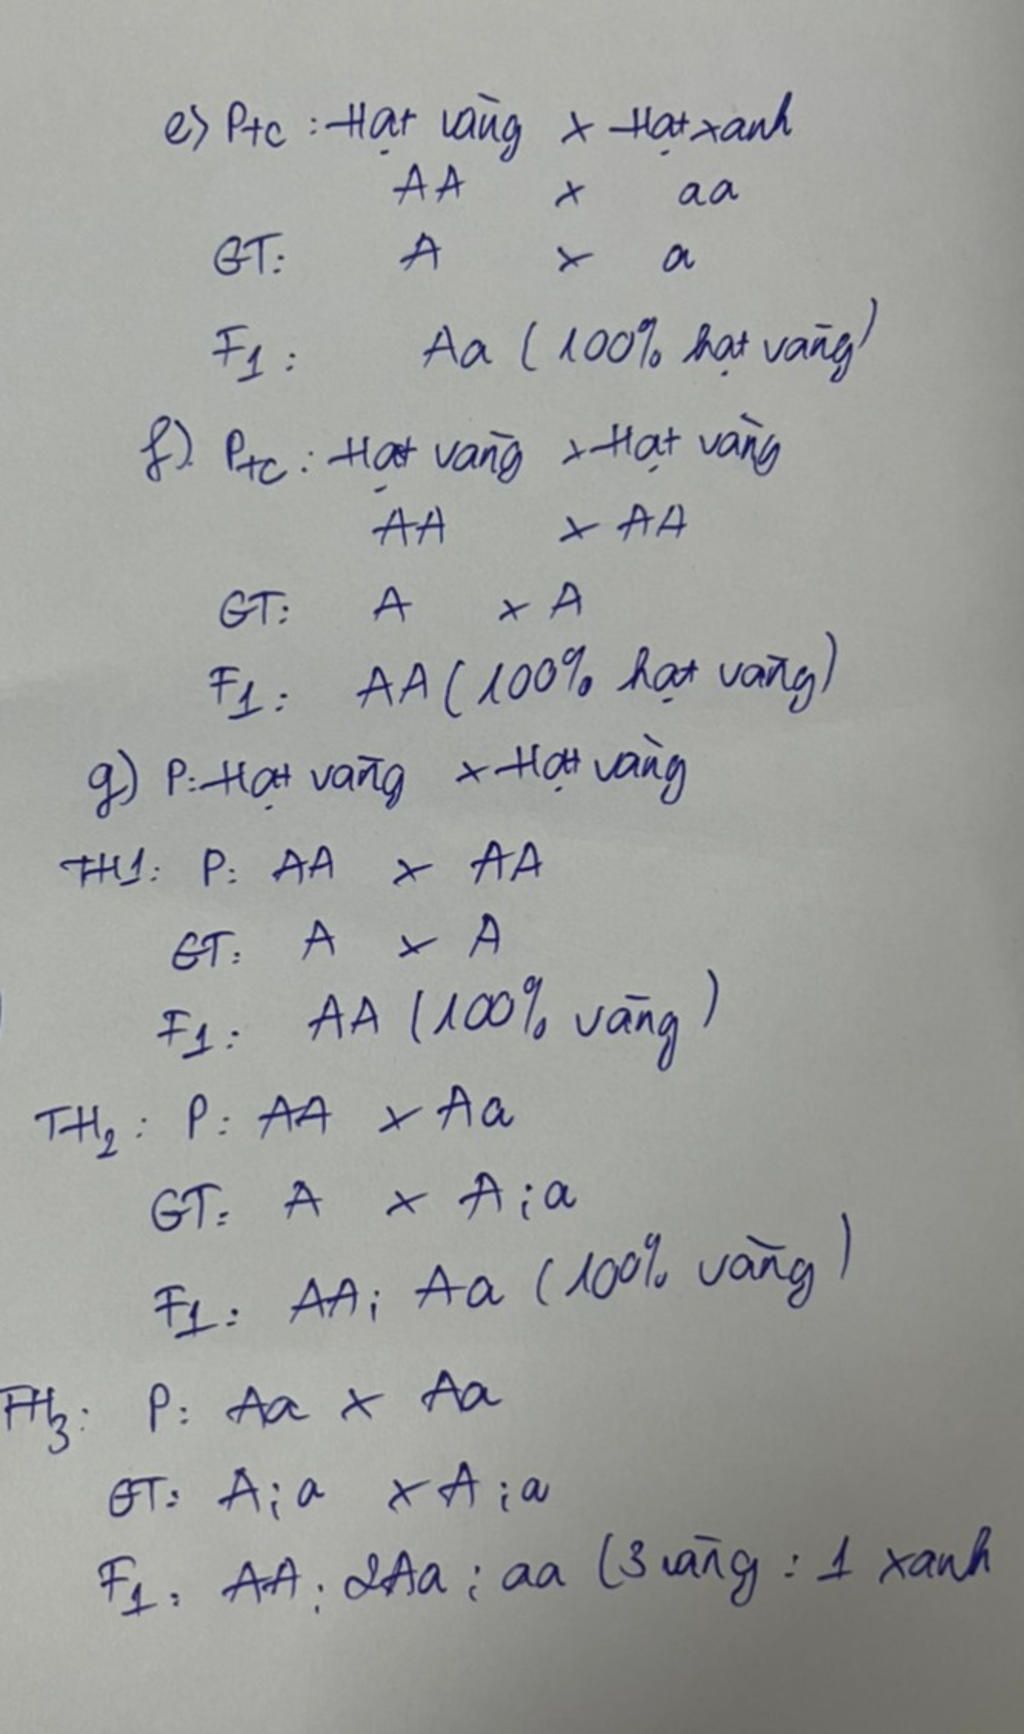 e) Ptc : Hạt vàng x Hạt xanh
AA x aa
GT: A x a
F1 : Aa ( 100% hạt vàng)
f) Ptc : Hạt vàng x Hạt vàng
AA x AA
GT: A x A
F1 : AA ( 100% hạt vàng)
g) P: Hạt vàng x Hạt vàng
TH1: P: AA x AA
GT: A x A
F1 : AA ( 100% vàng )
TH2 : P: AA x Aa
GT: A x A ; a
F1 : AA ; Aa ( 100% vàng )
TH3 : P: Aa x Aa
GT: A ; a x A ; a
F1 : AA ; 2Aa ; aa ( 3 vàng : 1 xanh